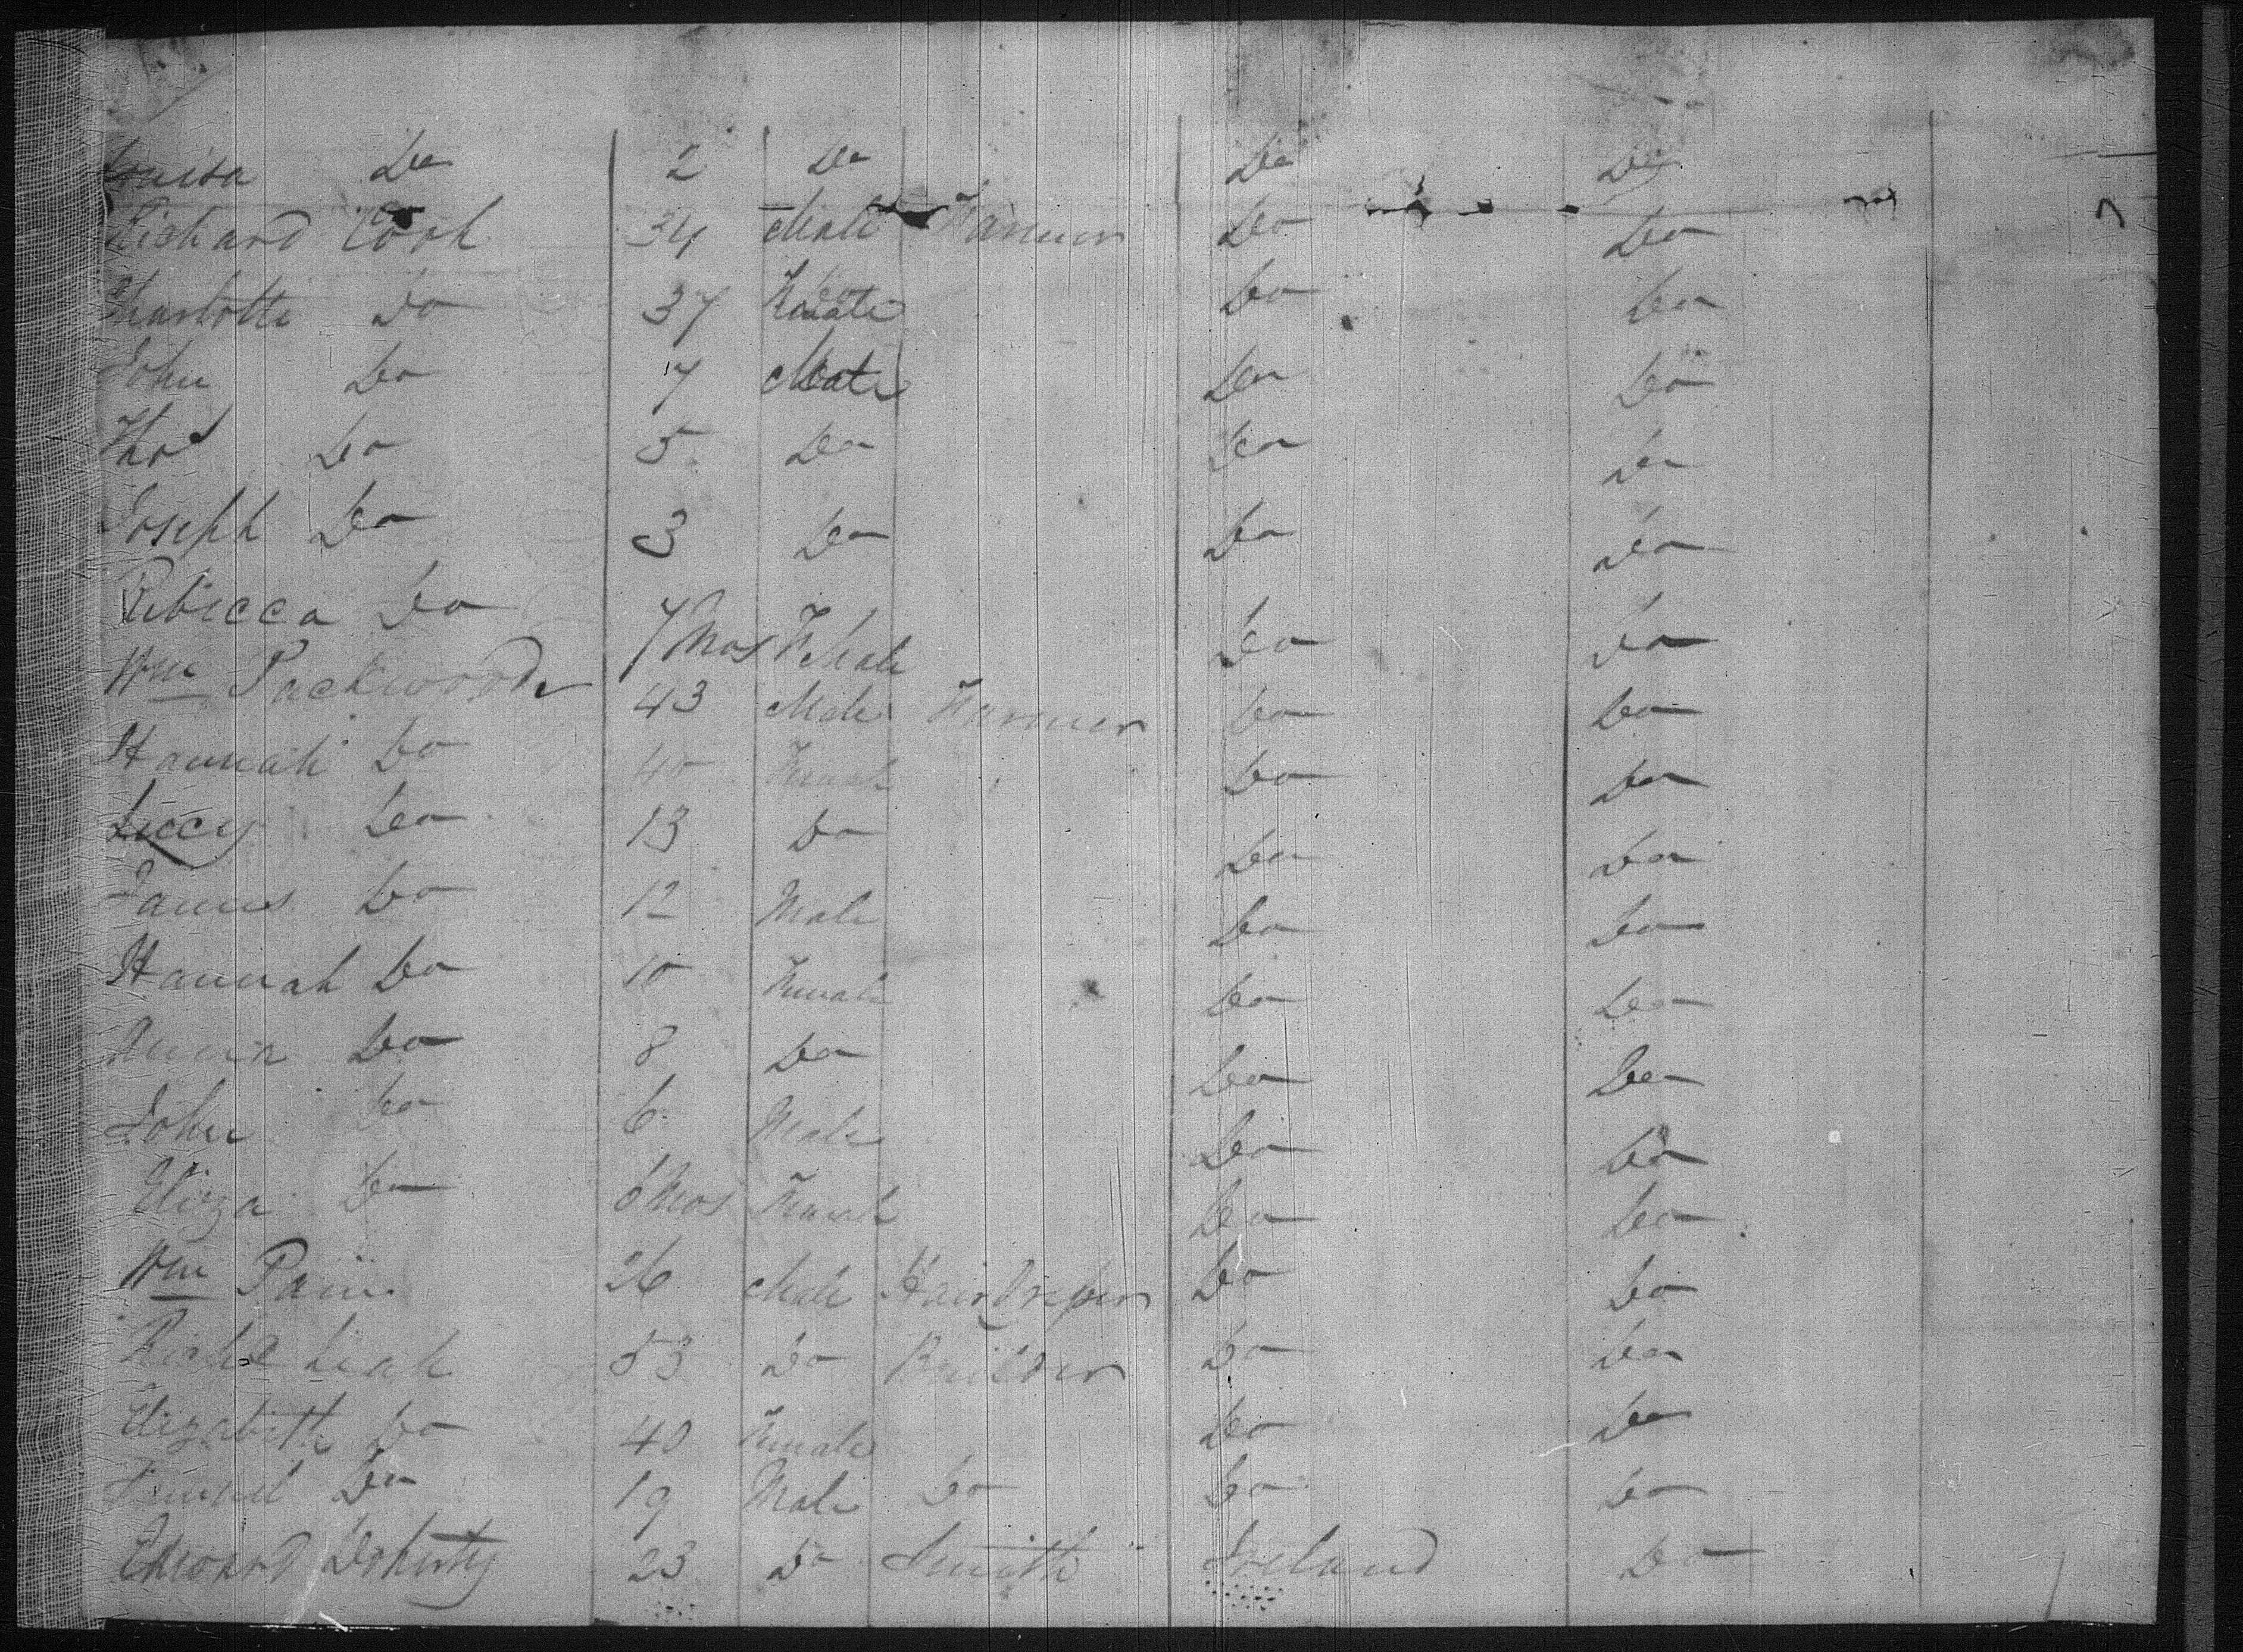 Louisa Do 2 Do Do Do
Richard Cook 34 Male Farmer Do Do
Charlotte Do 37 Female Do Do
John Do 7 Male Do Do
Thos Do 5 Do Do Do
Joseph Do 3 Do Do Do
Rebecca Do 7 Mos Female Do Do
Wm Packwood 43 Male Farmer Do Do
Hannah Do 40 Female Do Do
Luccy Do 13 Do Do Do
James Do 12 Male Do Do
Hannah Do 10 Female Do Do
Do 8 Do Do Do
John Do 6 Male Do Do
Eliza Do 6 Mos Female Do Do
Wm Pain 26 Male Hairdresser Do Do
Richd Leah 53 Do Builder Do Do
Elizabeth Do 40 Female Do Do
Do 19 Male Do Do Do
Edward Doherty 23 Do Smith Ireland Do